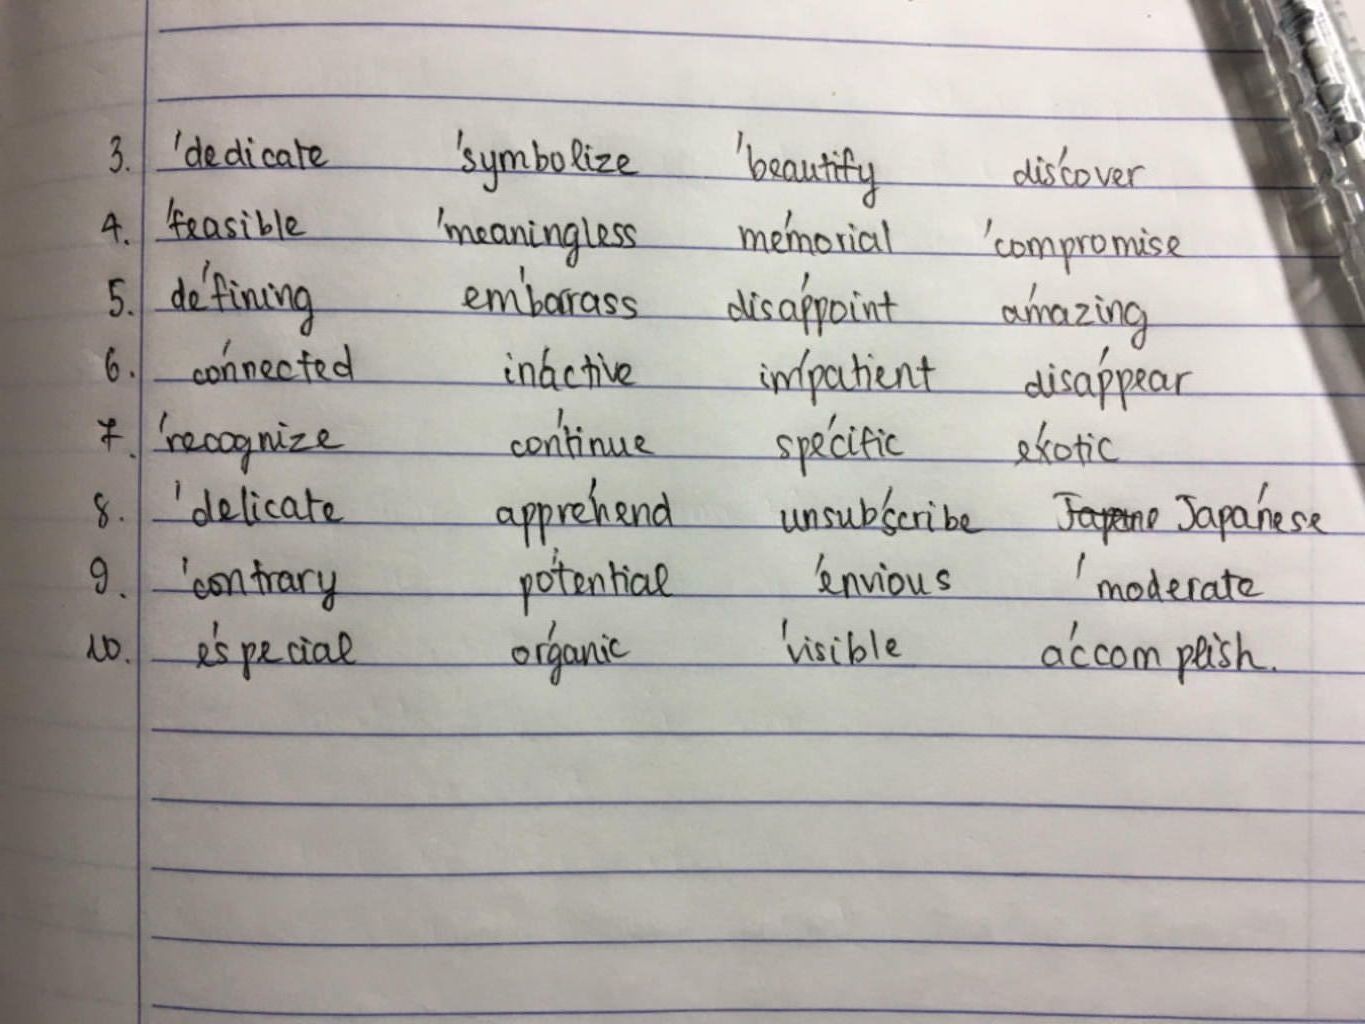 3. 'dedicate 'symbolize 'beautify dis'cover
4. 'feasible 'meaningless me'morial 'compromise
5. de'fining em'barrass disa'ppoint a'mazing
6. co'nnected in'active im'patient disa'ppear
7. 'recognize con'tinue spe'cific e'xotic
8. 'delicate appre'hend unsub'scribe Japa'nese
9. 'contrary po'tential 'envious 'moderate
10. e'special or'ganic 'visible a'ccomplish.